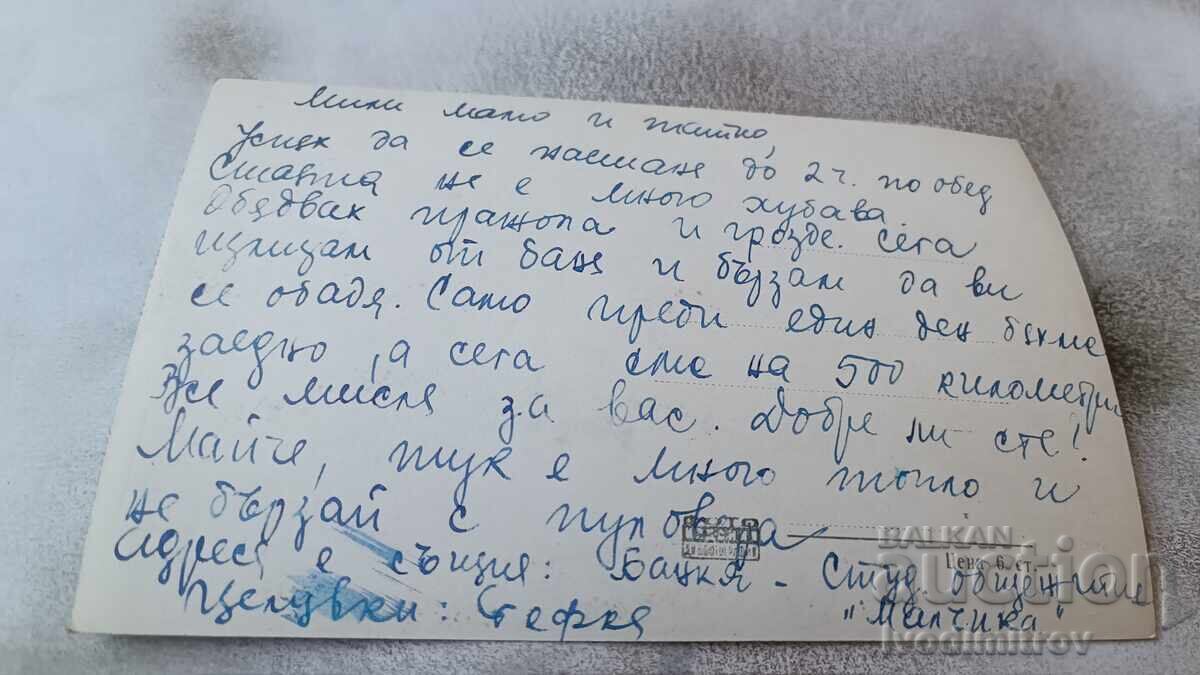 Мили мамо и татко,
Успях да се настаня до 2 ч. по обед
Стаята не е много хубава.
Обядвах пражола и грозде. Сега
излизам от баня и бързам да ви
се обадя. Само преди един ден бяхме
заедно, а сега сме на 500 километри
Все мисля за вас. Добре ли сте!
Майче, тук е много топло и
не бързай с пуловера
Адреса е същия: Банкя - Студ. общежитие
"Малчика"
Целувки: Стефка
Цена 6 ст.
BALKAN
auction
ivodimitrov